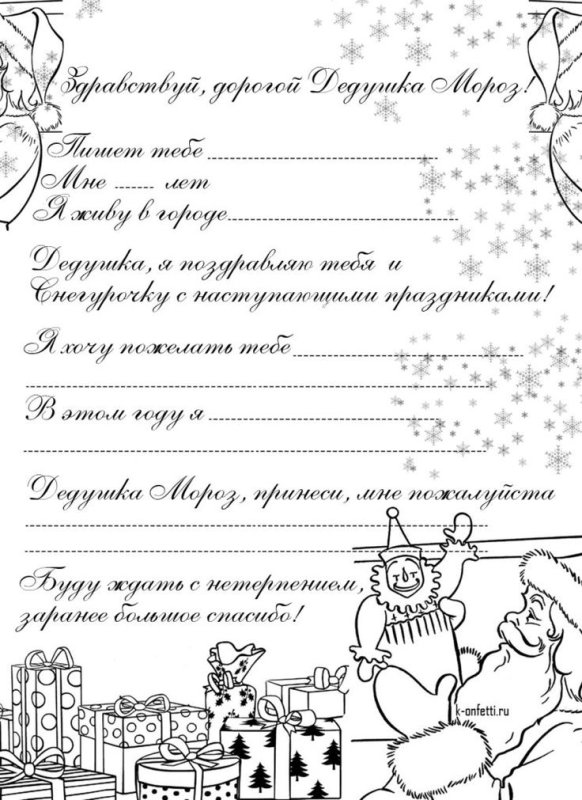 Здравствуй, дорогой Дедушка Мороз!
Пишет тебе
Мне лет
Я живу в городе
Дедушка, я поздравляю тебя и
Снегурочку с наступающими праздниками!
Я хочу пожелать тебе
В этом году я
Дедушка Мороз, принеси, мне пожалуйста
Буду ждать с нетерпением,
заранее большое спасибо!
k-onfetti.ru